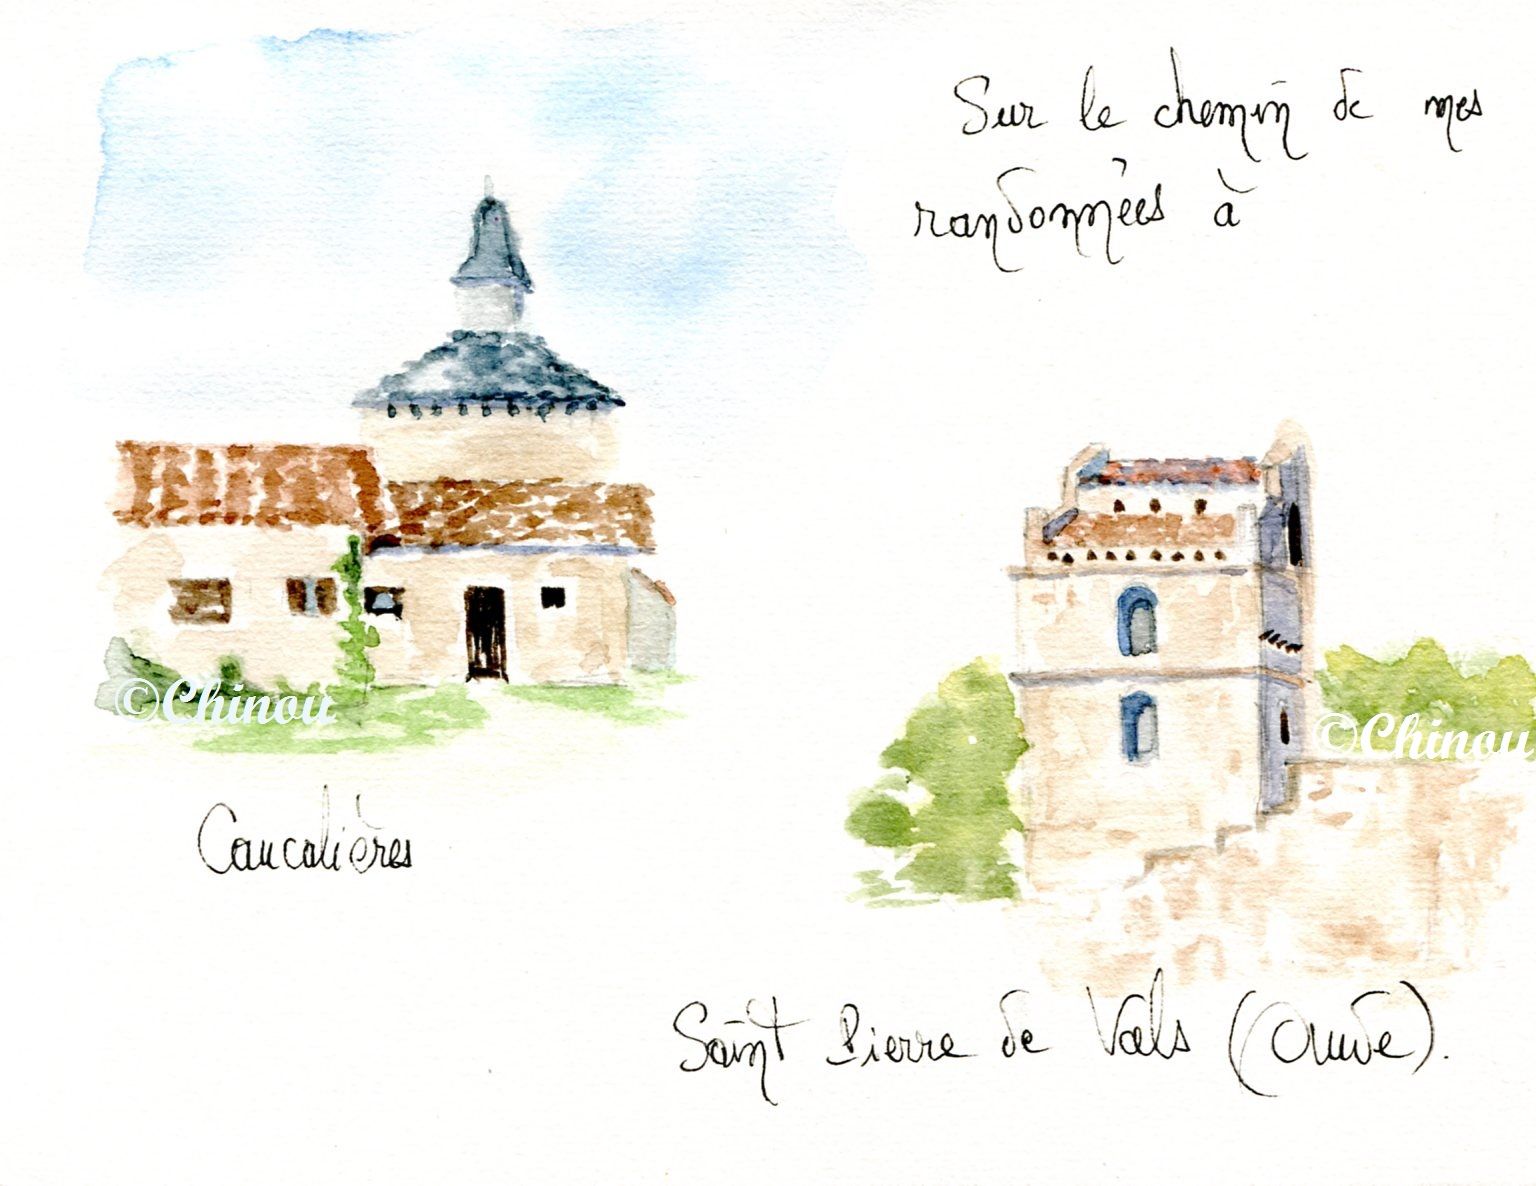 Sur le chemin de mes
randonnées à
©Chinou
©Chinou
Caucalières
Saint Pierre de Vals (Aude).